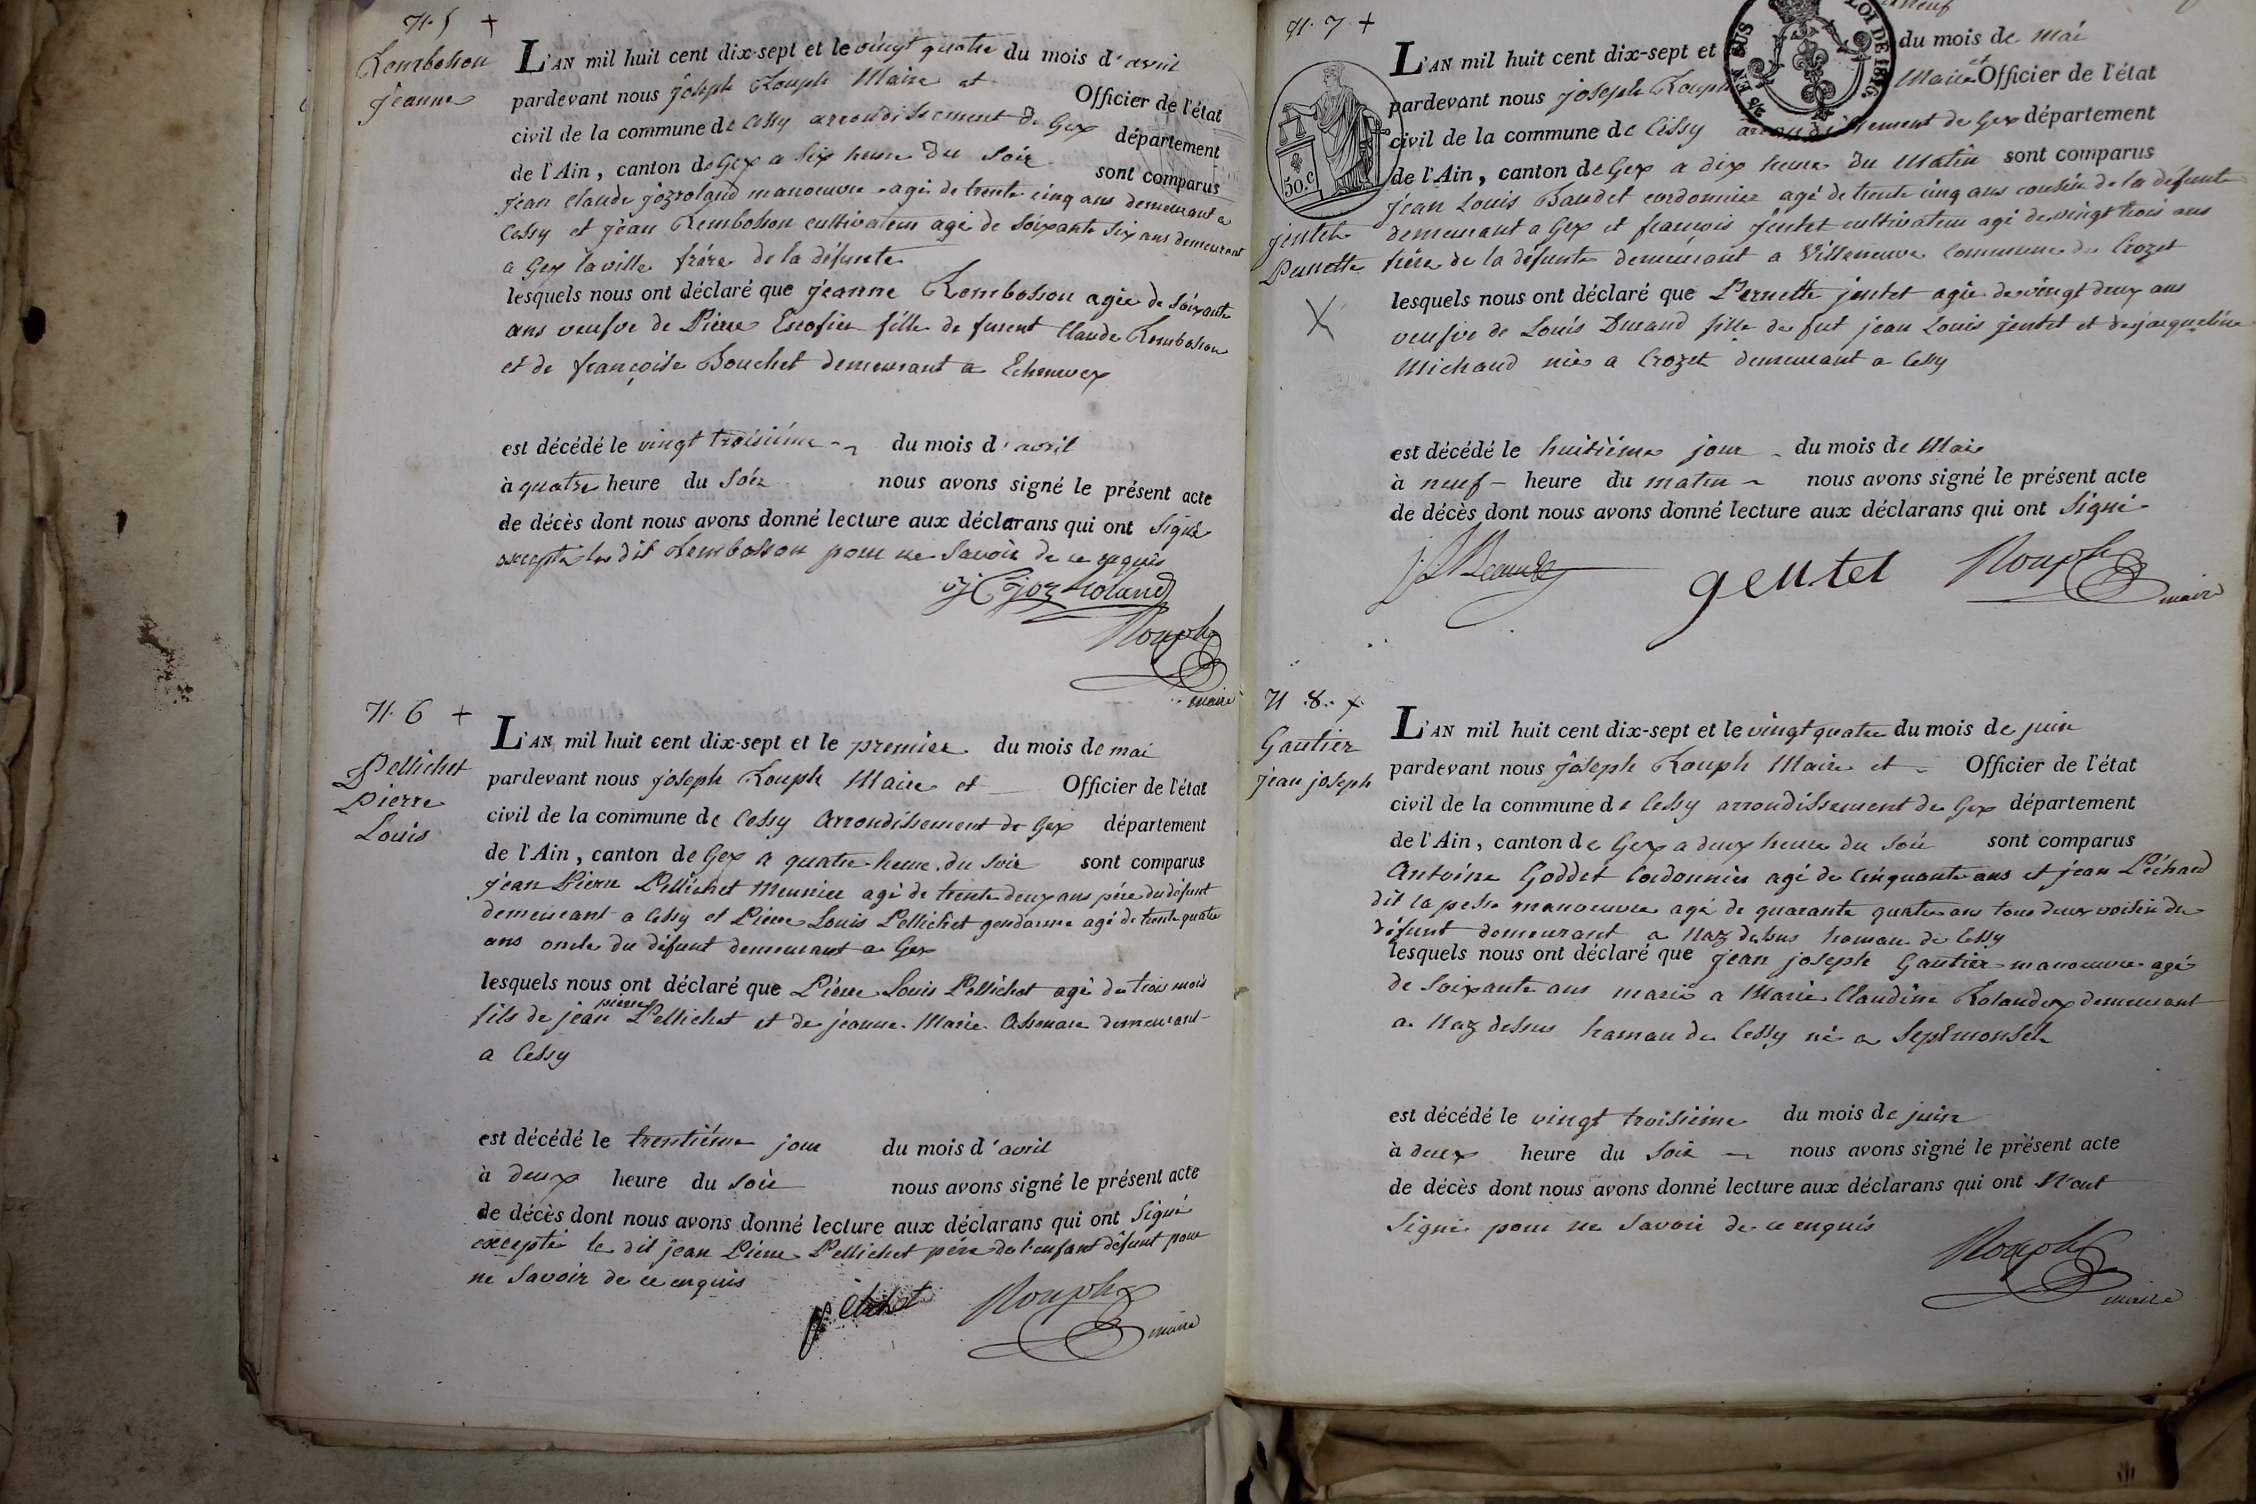 N. 5 +
Rembosson
Jeanne
L'AN mil huit cent dix-sept et le vingt quatre du mois d'avril
pardevant nous joseph Rouph Maire et Officier de l'état
civil de la commune de Cessy arrondissement de Gex département
de l'Ain, canton de Gex a six heure du soir sont comparus
jean Claude jozroland manoeuvre agé de trente cinq ans demeurant a
Cessy et jean Rembosson cultivateur agé de soixante six ans demeurant
a Gex la ville frére de la défunte
lesquels nous ont déclaré que jeanne Rembosson agée de soixante
ans veufve de Pierre Escofier fille de furent Claude Rembosson
et de françoise Bouchet demeurant a Echenevex
est décédé le vingt troisiéme du mois d'avril
à quatre heure du soir nous avons signé le présent acte
de décès dont nous avons donné lecture aux déclarans qui ont signé
excepté le dit Rembosson pour ne savoir de ce enquis
jC joz Roland
Rouph
maire
N. 6 +
Pellichet
Pierre
Louis
L'AN mil huit cent dix-sept et le premier du mois de mai
pardevant nous joseph Rouph Maire et Officier de l'état
civil de la commune de Cessy Arrondissement de Gex département
de l'Ain, canton de Gex a quatre heure du soir sont comparus
jean Pierre Pellichet Meunier agé de trente deux ans pére du défunt
demeurant a Cessy et Pierre Louis Pellichet gendarme agé de trente quatre
ans oncle du défunt demeurant a Gex
lesquels nous ont déclaré que Pierre Louis Pellichet agé de trois mois
fils de jean pierre Pellichet et de jeanne Marie demeurant
a Cessy
est décédé le trentiéme jour du mois d'avril
à deux heure du soir nous avons signé le présent acte
de décès dont nous avons donné lecture aux déclarans qui ont signé
excepté le dit jean Pierre Pellichet pére de l'enfant défunt pour
ne savoir de ce enquis
Rouph
maire
N. 7 +
L'AN mil huit cent dix-sept et neuf du mois de mai
pardevant nous joseph Rouph Maire et Officier de l'état
civil de la commune de Cessy arrondissement de Gex département
de l'Ain, canton de Gex a dix heure du matin sont comparus
2/5 EN SUS LOI DE 1816.
50.c
jentet
Pernette
X
jean Louis Baudet cordonnier agé de trente cinq ans cousin de la défunte
demeurant a Gex et françois jentet cultivateur agé de vingt trois ans
frére de la défunte demeurant a Villeneuve Commune de Crozet
lesquels nous ont déclaré que Pernette jentet agée de vingt deux ans
veufve de Louis Durand fille de fut jean Louis jentet et de jacqueline
Michaud née a Crozet demeurant a Cessy
est décédé le huitiéme jour du mois de Mai
à neuf heure du matin nous avons signé le présent acte
de décès dont nous avons donné lecture aux déclarans qui ont signé
gentet Rouph
maire
N. 8. +
Gautier
jean joseph
L'AN mil huit cent dix-sept et le vingt quatre du mois de juin
pardevant nous joseph Rouph Maire et Officier de l'état
civil de la commune de Cessy arrondissement de Gex département
de l'Ain, canton de Gex a deux heure du soir sont comparus
Antoine Goddet Cordonnier agé de cinquante ans et jean Péchard
dit la peste manoeuvre agé de quarante quatre ans tous deux voisin du
défunt demeurant a Naz dessus hamau de Cessy
lesquels nous ont déclaré que jean joseph Gautier manoeuvre agé
de soixante ans marié a Marie Claudine Rolandex demeurant
a Naz dessus hamau de Cessy né a Septmonsel
est décédé le vingt troisiéme du mois de juin
à deux heure du soir nous avons signé le présent acte
de décès dont nous avons donné lecture aux déclarans qui ont N'ont
signé pour ne savoir de ce enquis
Rouph
maire